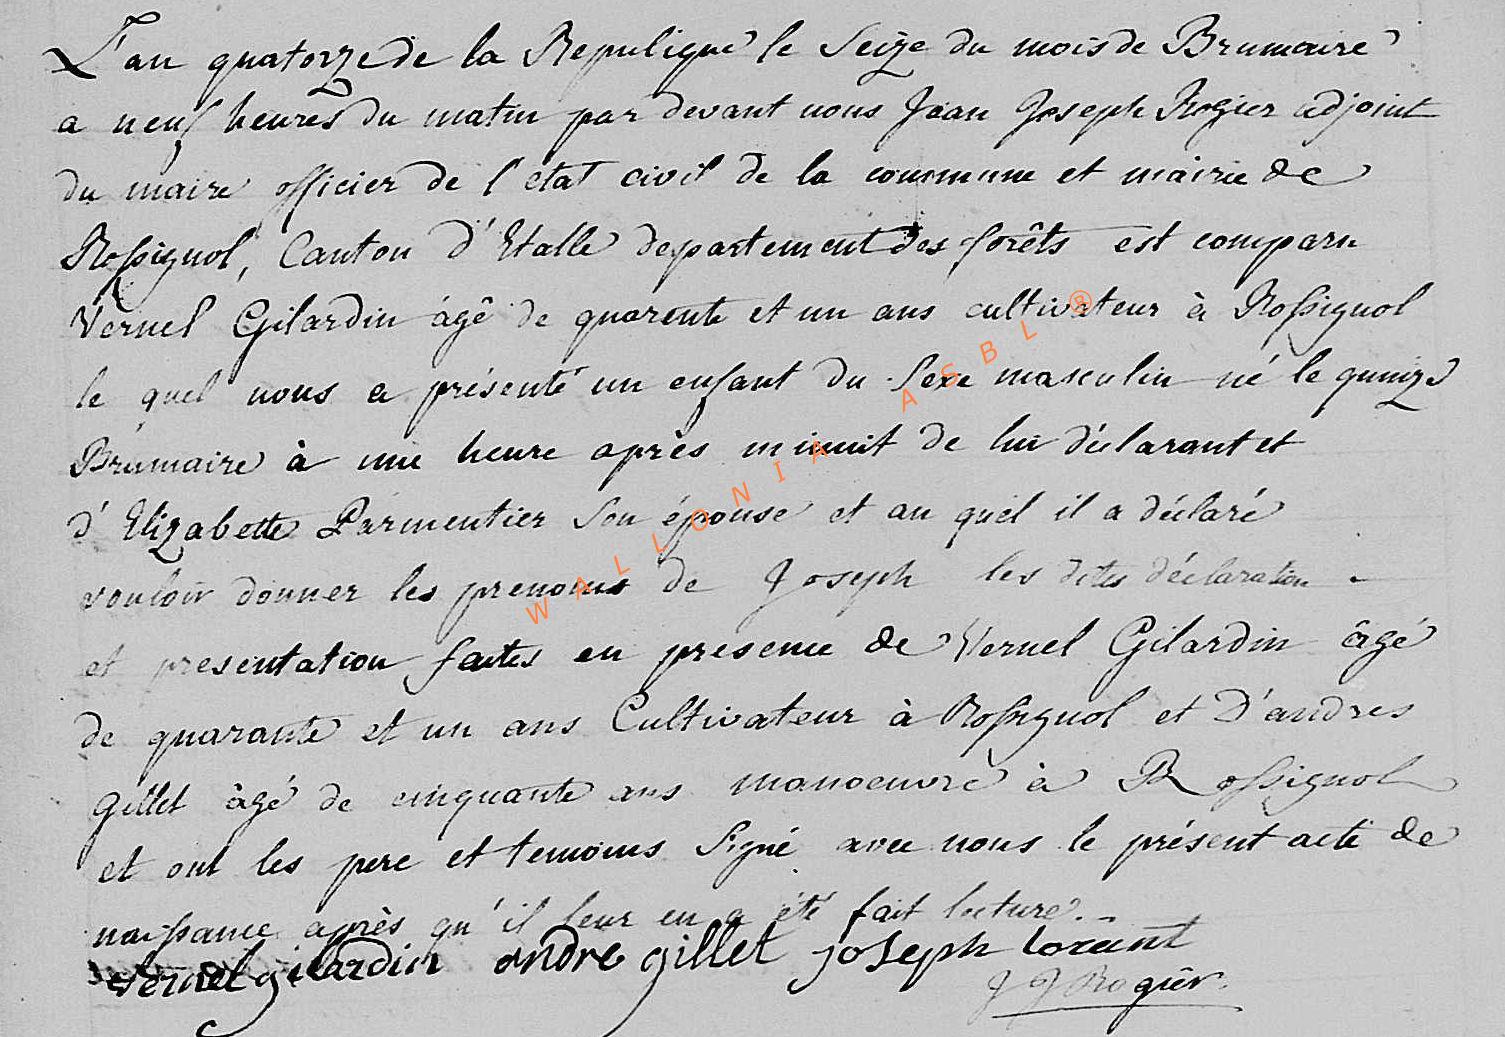 L'an quatorze de la Republique le Seize du mois de Brumaire
a neuf heures du matin par devant nous Jean Joseph Rogier adjoint
du maire officier de l'etat civil de la commune et mairie de
Rossignol, Canton d'Etalle departement des forêts est comparu
Vernel Gilardin âgé de quarente et un ans cultivateur à Rossignol
le quel nous a présenté un enfant du Sexe masculin né le quinze
Brumaire à une heure après minuit de lui déclarant et
d'Elizabette Parmentier Son épouse et au quel il a déclaré
vouloir donner les prenoms de Joseph les dites déclaration
et presentation faites en presence de Vernel Gilardin âgé
de quarante et un ans Cultivateur à Rossignol et D'andres
Gillet âgé de cinquante ans manoeuvre à Rossignol
et ont les pere et temoins Signé avec nous le présent acte de
naissance après qu'il leur en a été fait lecture.
vernel gilardin andre gillet joseph lorant
J J Rogier
WALLONIA ASBL ®